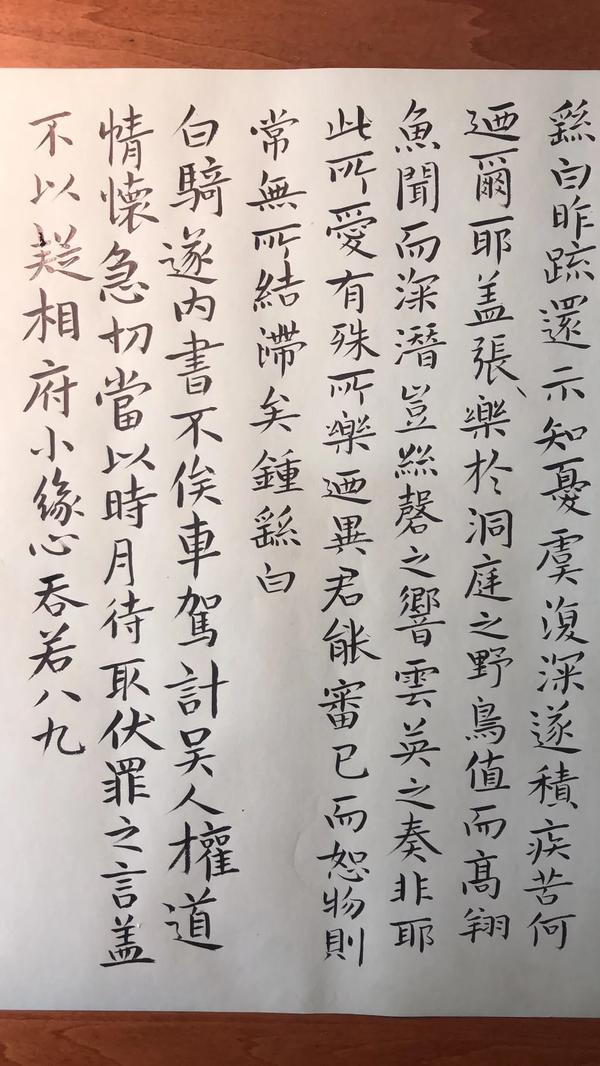 繇白昨疏還示知憂虞復深遂積疾苦何
迺爾耶盖張樂於洞庭之野鳥值而高翔
魚聞而深潛豈絲磬之響雲英之奏非耶
此所愛有殊所樂迺異君能審己而恕物則
常無所結滯矣鍾繇白
白騎遂內書不俟車駕計吴人權道
情懷急切當以時月待取伏罪之言盖
不以疑相府小緣心吞若八九